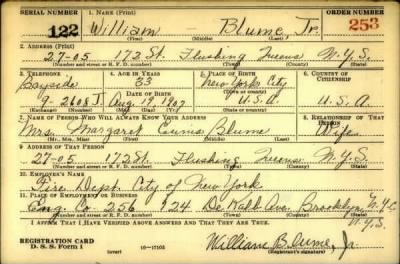 SERIAL NUMBER 1. NAME (Print) ORDER NUMBER
122 William — Blume Jr. 253
(First) (Middle) (Last)
2. ADDRESS (Print)
27-05 172 St. Flushing Queens N.Y.S.
(Number and street or R. F. D. number) (Town) (County) (State)
3. TELEPHONE 4. AGE IN YEARS 5. PLACE OF BIRTH 6. COUNTRY OF CITIZENSHIP
Bayside 33 New York City
DATE OF BIRTH (Town or county)
9-2608 J. Aug. 19, 1907 U.S.A. U.S.A.
(Exchange) (Number) (Mo.) (Day) (Yr.) (State or country)
7. NAME OF PERSON WHO WILL ALWAYS KNOW YOUR ADDRESS 8. RELATIONSHIP OF THAT PERSON
Mrs. Margaret Blume Wife
(Mr., Mrs., Miss) (First) (Middle) (Last)
9. ADDRESS OF THAT PERSON
27-05 172 St. Flushing Queens N.Y.S.
(Number and street or R. F. D. number) (Town) (County) (State)
10. EMPLOYER'S NAME
Fire Dept. City of New York
11. PLACE OF EMPLOYMENT OR BUSINESS
Eng. Co. 256 124 De Kalb Ave. Brooklyn, N.Y.C.
(Number and street or R. F. D. number) (Town) (County) (State) N.Y.S.
I AFFIRM THAT I HAVE VERIFIED ABOVE ANSWERS AND THAT THEY ARE TRUE.
REGISTRATION CARD William Blume, Jr.
D. S. S. Form 1 (over) 16—17105 (Registrant's signature)